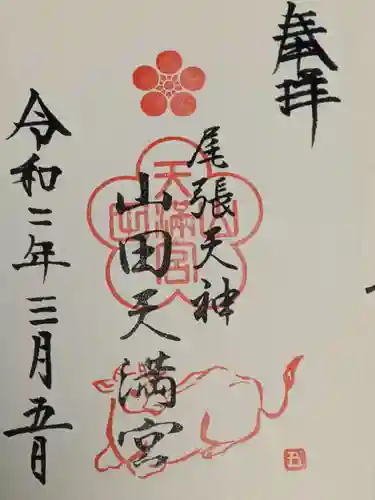 奉拝
尾張天神
山田天満宮
令和二年三月五日
山田天満宮